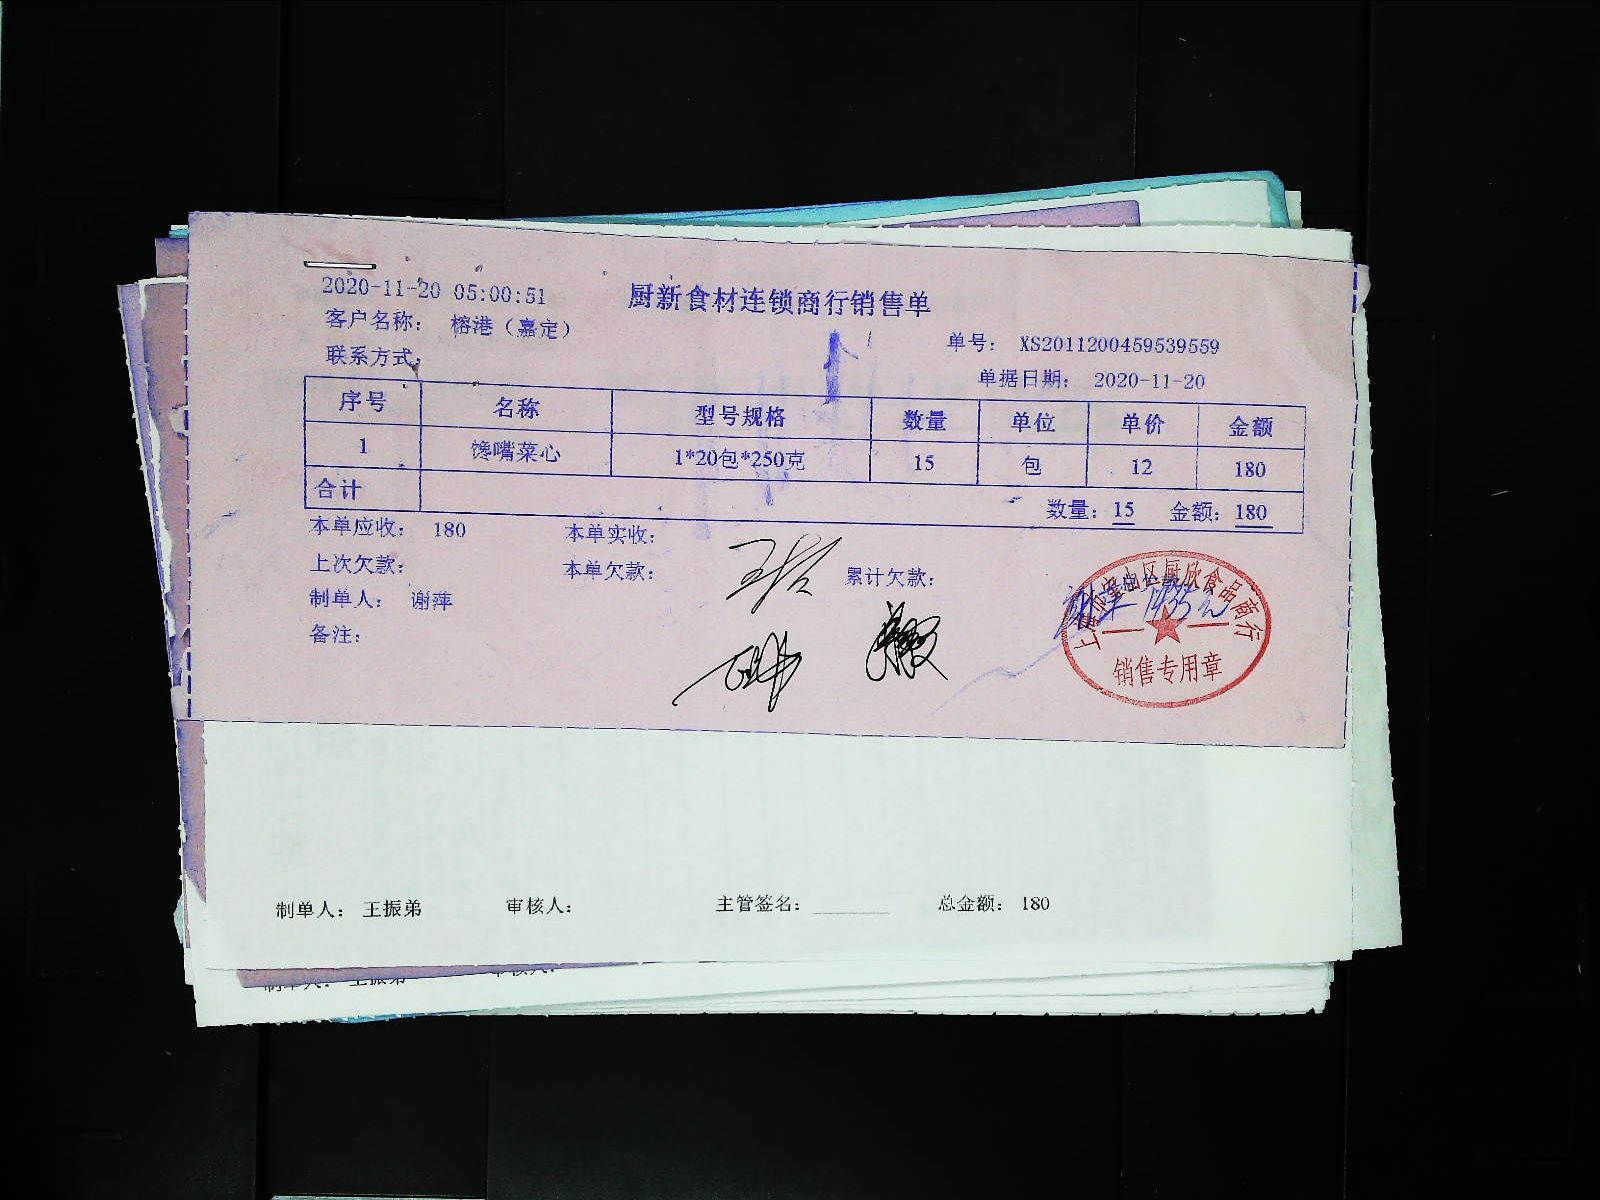 2020-11-20 05:00:51
厨新食材连锁商行销售单
客户名称： 榕港（嘉定）
单号： XS2011200459539559
联系方式：
单据日期： 2020-11-20
序号 名称 型号规格 数量 单位 单价 金额
1 馋嘴菜心 1*20包*250克 15 包 12 180
合计 数量：15 金额：180
本单应收： 180 本单实收：
上次欠款： 本单欠款： 累计欠款：
制单人： 谢萍
备注：
上海市宝山区厨欣食品商行
销售专用章
制单人： 王振弟 审核人： 主管签名： 总金额： 180
制单人： 王振弟 审核人：